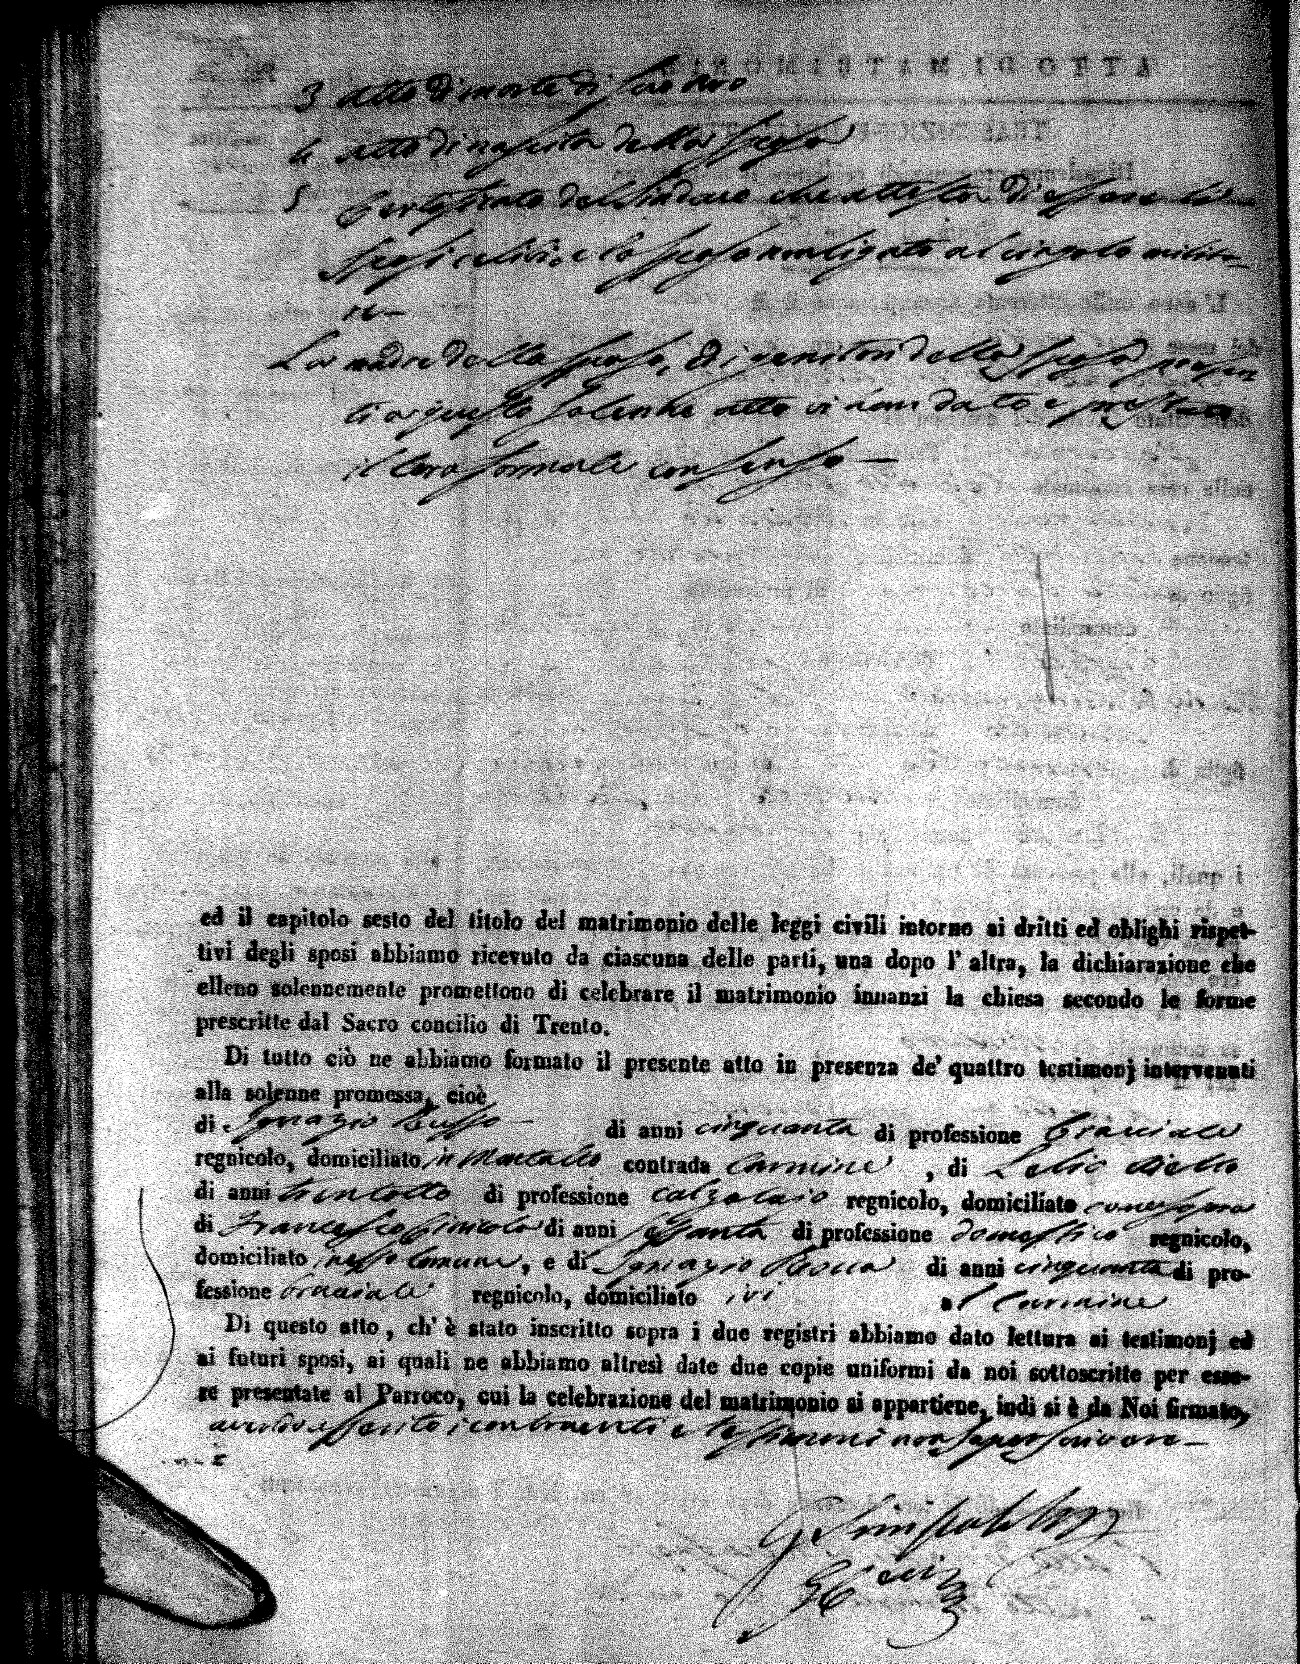 3 Atto di morte di suo Avo
4 Atto di nascita della sposa
5 Certificato del Sindaco che attesta di essere li
sposi celibi, e lo sposo non ligato al cingolo milita-
re—
La madre dello sposo, ed i genitori della sposa presen
ti a questo solenne atto vi han dato e prestato
il loro formale consenso —
ed il capitolo sesto del titolo del matrimonio delle leggi civili intorno ai dritti ed oblighi rispet-
tivi degli sposi abbiamo ricevuto da ciascuna delle parti, una dopo l' altra, la dichiarazione che
elleno solennemente promettono di celebrare il matrimonio innanzi la chiesa secondo le forme
prescritte dal Sacro concilio di Trento.
Di tutto ciò ne abbiamo formato il presente atto in presenza de' quattro testimonj intervenuti
alla solenne promessa, cioè
di Ignazio Russo — di anni cinquanta di professione Bracciale
regnicolo, domiciliato in contrada Carmine , di Lelio
di anni trentotto di professione calzolaio regnicolo, domiciliato come sopra
di Francesco di anni sessanta di professione domestico regnicolo,
domiciliato in esso Comune, e di Ignazio di anni cinquanta di pro-
fessione bracciale regnicolo, domiciliato ivi al Carmine
Di questo atto, ch' è stato inscritto sopra i due registri abbiamo dato lettura ai testimonj ed
ai futuri sposi, ai quali ne abbiamo altresì date due copie uniformi da noi sottoscritte per esse-
re presentate al Parroco, cui la celebrazione del matrimonio si appartiene, indi si è da Noi firmato,
avendo asserito i contraenti e testimoni non saper scrivere—